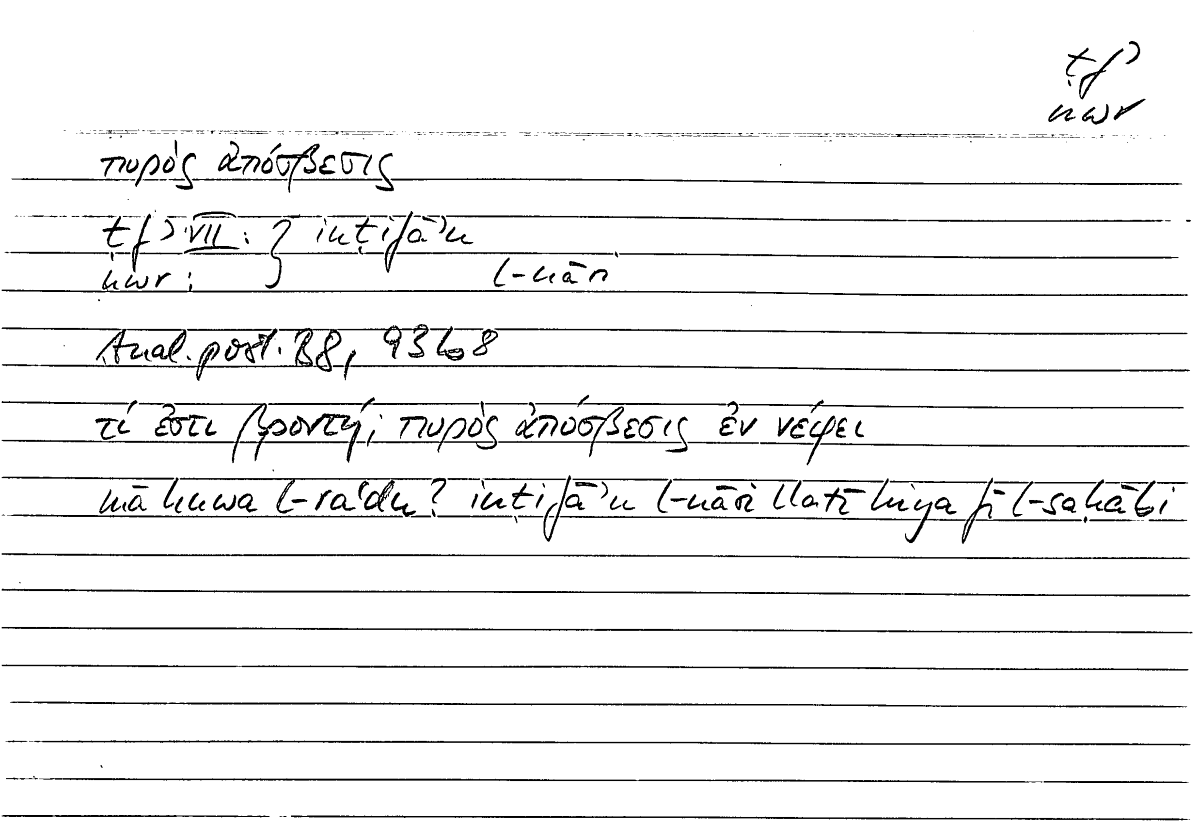 ṭfʾ
nwr
πυρὸς ἀπόσβεσις
ṭfʾ VII: } inṭifāʾu
nwr: l-nāri
Anal. post. B8, 93b8
τί ἐστι βροντή; πυρὸς ἀπόσβεσις ἐν νέφει
mā huwa l-raʿdu? inṭifāʾu l-nāri llatī hiya fī l-saḥābi